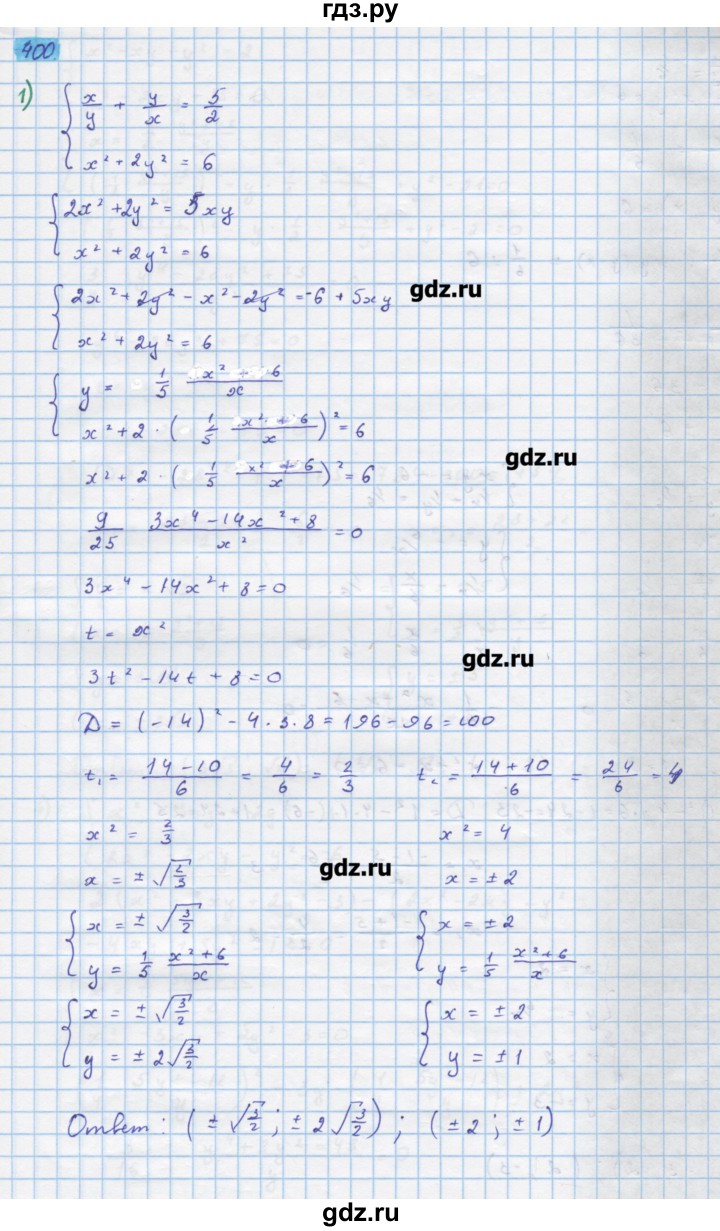 гдз.ру
400
1) { x/y + y/x = 5/2
x² + 2y² = 6
{ 2x² + 2y² = 5xy
x² + 2y² = 6
{ 2x² + 2y² - x² - 2y² = -6 + 5xy
gdz.ru
x² + 2y² = 6
{ y = 1/5 x² + 6/x
x² + 2 · ( 1/5 x² + 6/x )² = 6
gdz.ru
x² + 2 · ( 1/5 x² + 6/x )² = 6
9/25 3x⁴ - 14x² + 8/x² = 0
3x⁴ - 14x² + 8 = 0
t = x²
gdz.ru
3t² - 14t + 8 = 0
D = (-14)² - 4 · 3 · 8 = 196 - 96 = 100
t₁ = 14 - 10/6 = 4/6 = 2/3 t₂ = 14 + 10/6 = 24/6 = 4
x² = 2/3 x² = 4
gdz.ru
x = ± √2/3 x = ± 2
{ x = ± √3/2 { x = ± 2
y = 1/5 x² + 6/x y = 1/5 x² + 6/x
{ x = ± √3/2 { x = ± 2
y = ± 2√3/2 y = ± 1
Ответ: ( ± √3/2 ; ± 2√3/2 ) ; ( ± 2 ; ± 1 )
gdz.ru